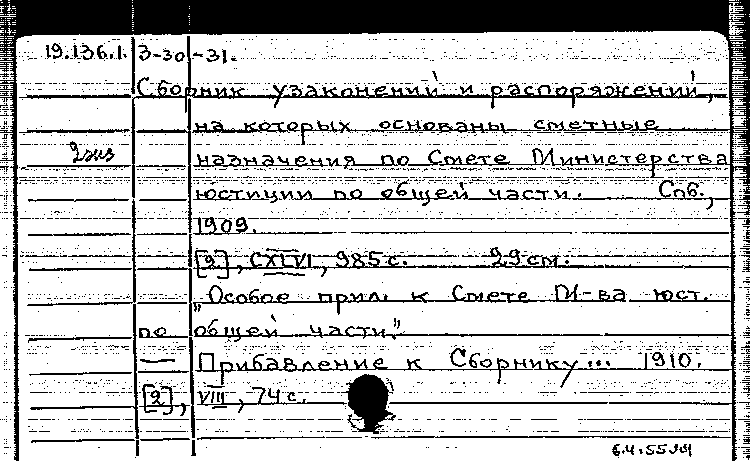 19.136.1. 3-30-31.
Сборник узаконений и распоряжений,
на которых основаны сметные
2 экз назначения по Смете Министерства
юстиции по общей части. Спб.,
1909.
[2], CXLVI, 985 с. 29 см.
„Особое прил. к Смете М-ва юст.
по общей части."
— Прибавление к Сборнику... 1910.
[2], VIII, 74 с.